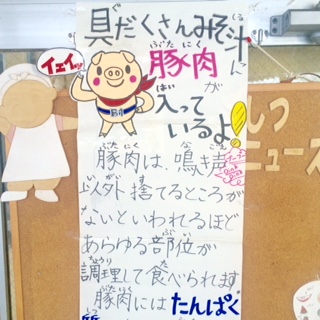 具だくさんみそ汁
豚肉が
入って
いるよ!
イェイッ
豚肉は、鳴き声
以外捨てるところが
ないといわれるほど
あらゆる部位が
調理して食べられます
豚肉にはたんぱく
ニュース